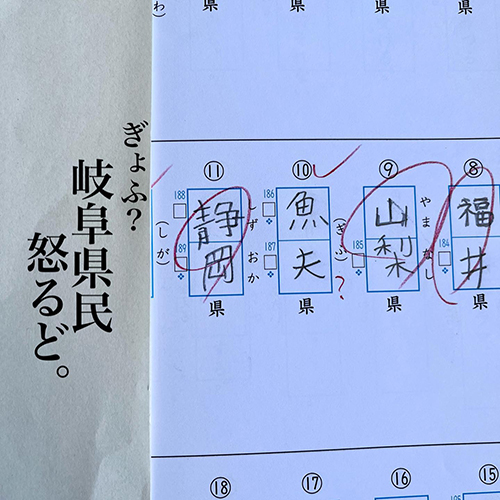 わ
県
県
県
県
ぎょふ?
岐阜県民
怒るど。
⑧
福井
184
県
⑨
やまなし
山梨
185
県
⑩
(ぎふ)
186
魚夫
187
?
県
⑪
しずおか
188
静岡
89
県
(しが)
⑮
⑯
⑰
⑱